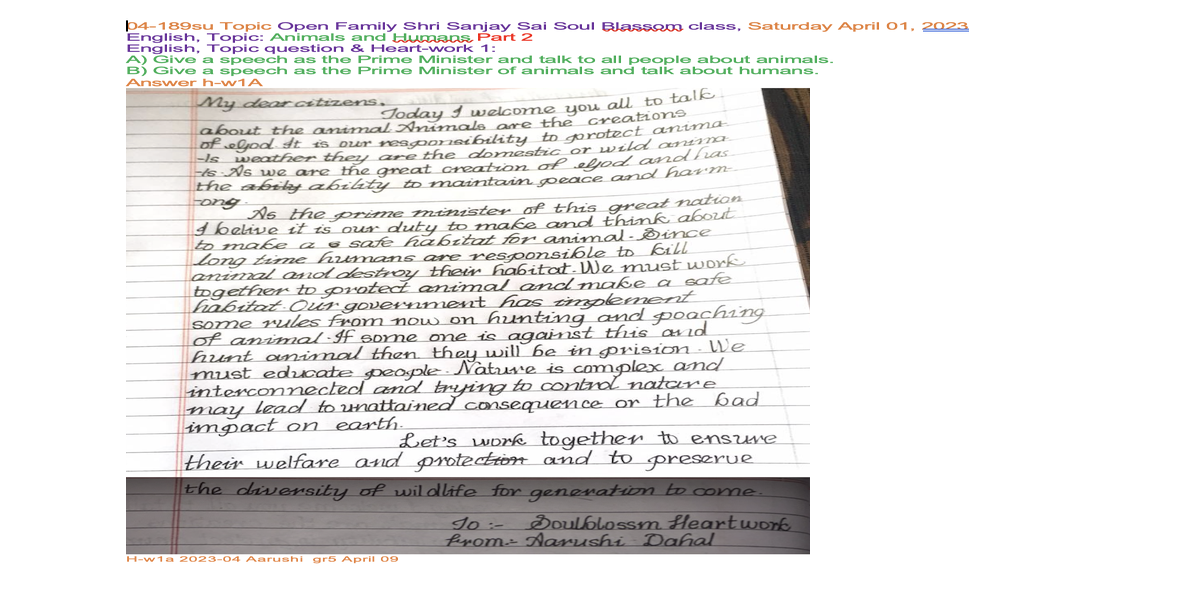 04-189su Topic Open Family Shri Sanjay Sai Soul Blassom class, Saturday April 01, 2023
English, Topic: Animals and Humans Part 2
English, Topic question & Heart-work 1:
A) Give a speech as the Prime Minister and talk to all people about animals.
B) Give a speech as the Prime Minister of animals and talk about humans.
Answer h-w1A
My dear citizens,
Today I welcome you all to talk
about the animal. Animals are the creations
of God. It is our responsibility to protect anima
-ls weather they are the domestic or wild anima
-ls. As we are the great creation of God and has
the abily ability to maintain peace and harm-
-ony.
As the prime minister of this great nation
I belive it is our duty to make and think about
to make a safe habitat for animal. Since
long time humans are responsible to kill
animal and destroy their habitat. We must work
together to protect animal and make a safe
habitat. Our government has implement
some rules from now on hunting and poaching
of animal. If some one is against this and
hunt animal then they will be in prision. We
must educate people. Nature is complex and
interconnected and trying to control nature
may lead to unattained consequence or the bad
impact on earth.
Let's work together to ensure
their welfare and protection and to preserve
the diversity of wildlife for generation to come.
To :- Soulblossm Heartwork
From:- Aarushi Dahal
H-w1a 2023-04 Aarushi gr5 April 09